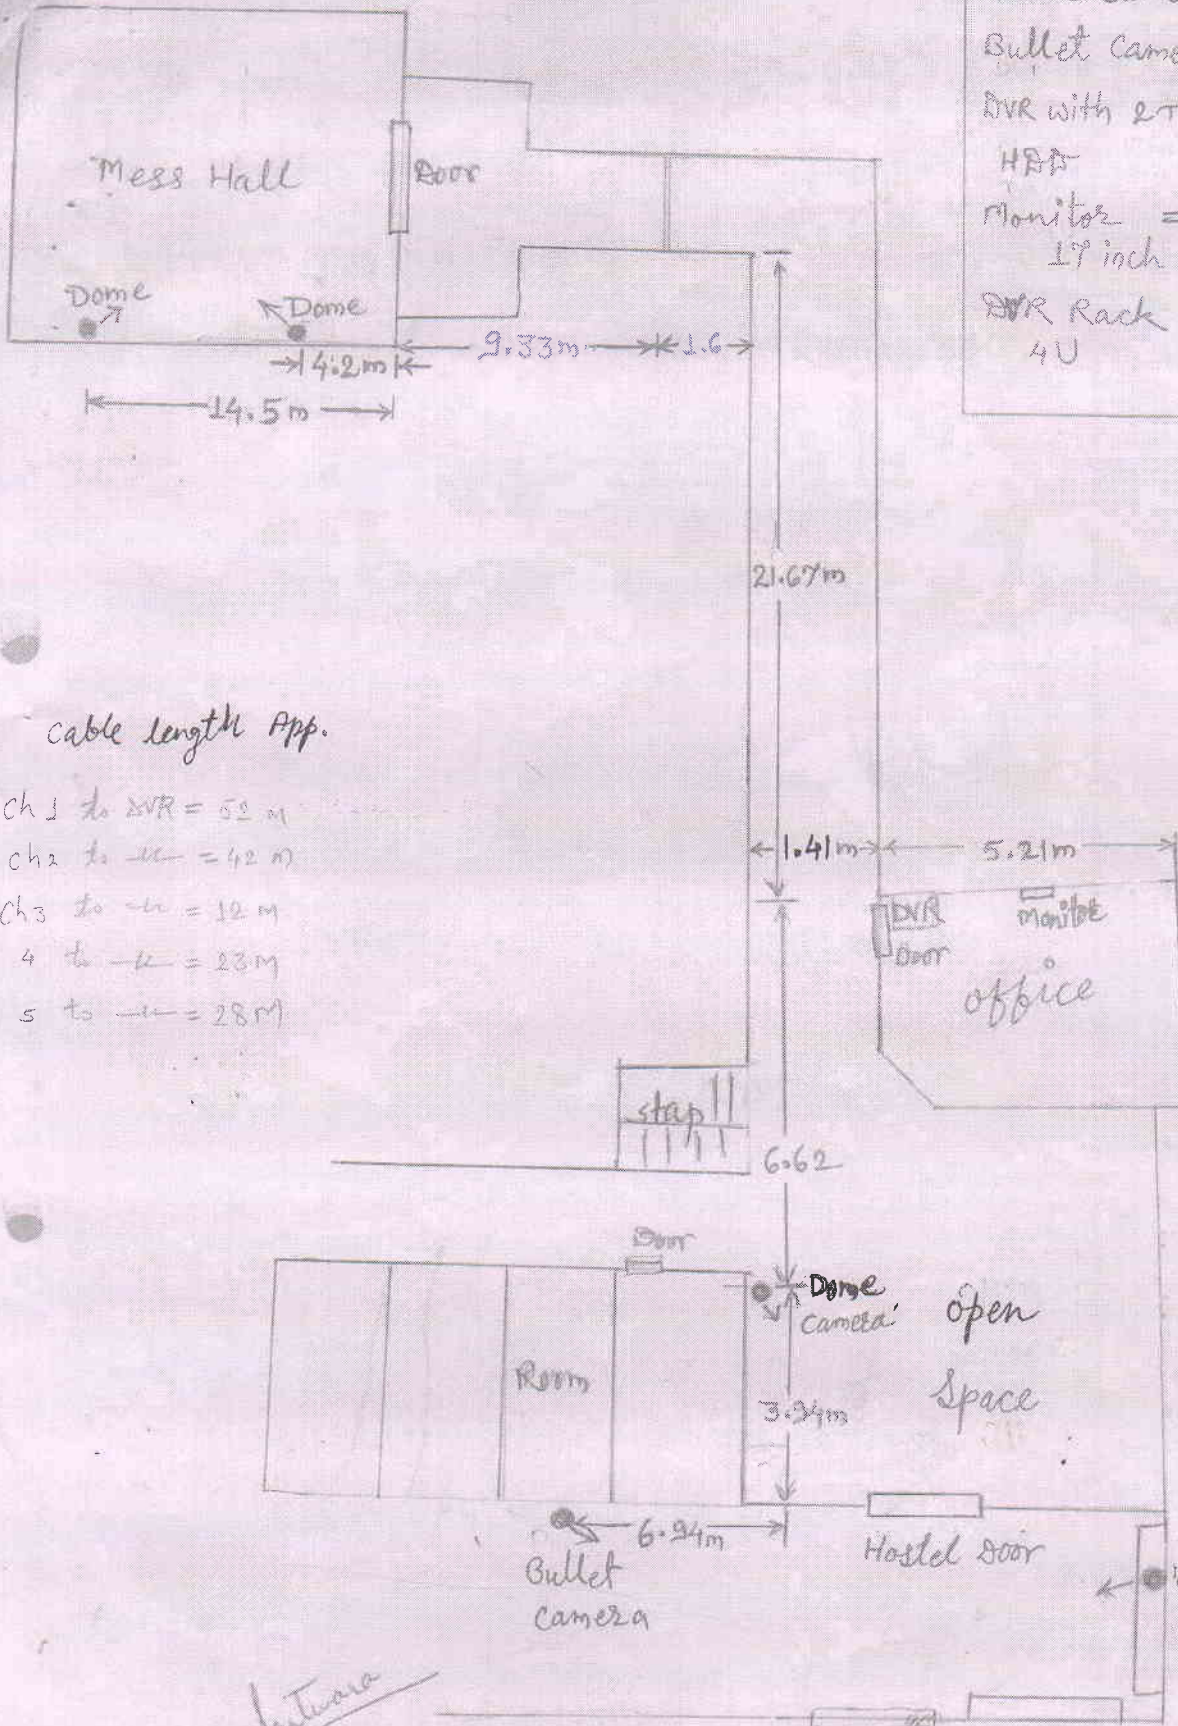 Bullet Came
DVR with 2T
HDD
Monitor =
17 inch
DVR Rack
4U
Mess Hall
Door
Dome
Dome
9.33m
1.6
4.2m
14.5m
21.67m
Cable length App.
Ch 1 to DVR = 52 M
Ch2 to -"- = 42 M
Ch3 to -"- = 12 M
4 to -"- = 23M
5 to -"- = 28M
1.41m
5.21m
DVR
Monitor
Door
office
stap
6.62
Door
Dome
Camera
open
Space
Room
3.94m
6.94m
Hostel Door
Bullet
Camera